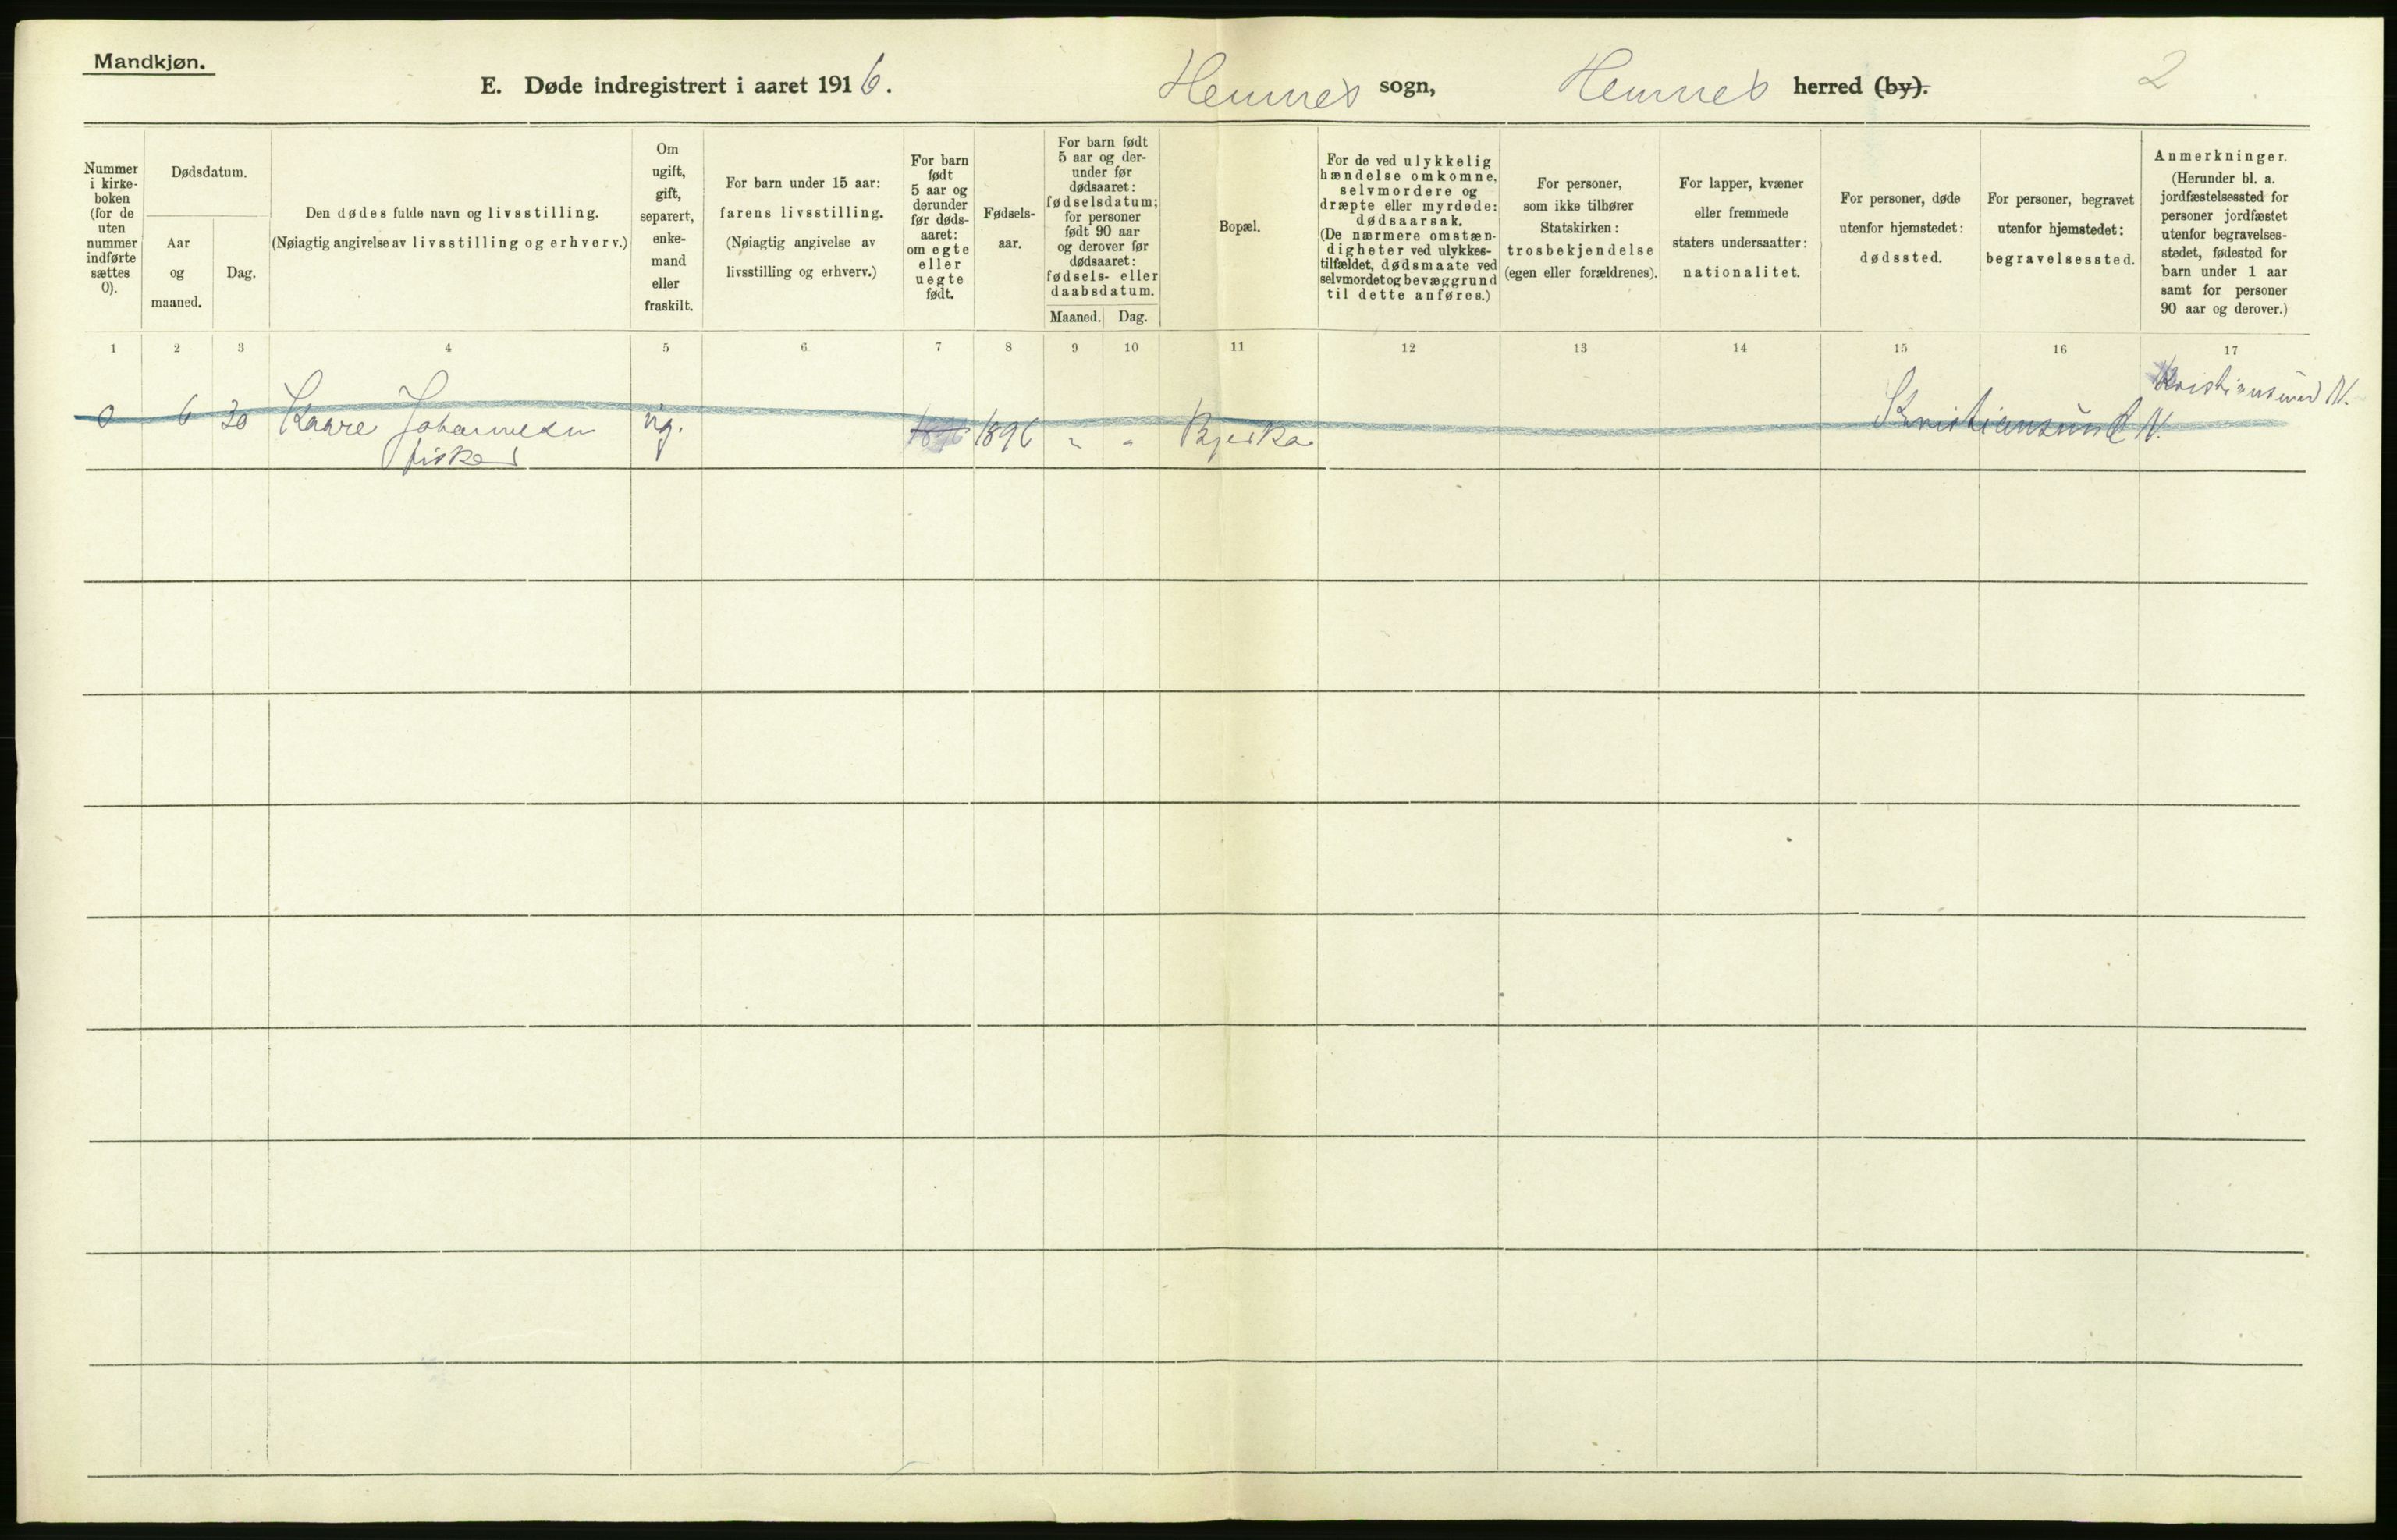 Mandkjøn.
E. Døde indregistrert i aaret 1916. Hemnes sogn, Hemnes herred (by). 2
Nummer
i kirke-
boken
(for de
uten
nummer
indførte
sættes
0).
Dødsdatum.
Aar
og
maaned.
Dag.
Den dødes fulde navn og livsstilling.
(Nøiagtig angivelse av livsstilling og erhverv.)
Om
ugift,
gift,
separert,
enke-
mand
eller
fraskilt.
For barn under 15 aar:
farens livsstilling.
(Nøiagtig angivelse av
livsstilling og erhverv.)
For barn
født
5 aar og
derunder
før døds-
aaret:
om egte
eller
uegte
født.
Fødsels-
aar.
For barn født
5 aar og der-
under før
dødsaaret:
fødselsdatum;
for personer
født 90 aar
og derover før
dødsaaret:
fødsels- eller
daabsdatum.
Maaned. Dag.
Bopæl.
For de ved ulykkelig
hændelse omkomne,
selvmordere og
dræpte eller myrdede:
dødsaarsak.
(De nærmere omstæn-
digheter ved ulykkes-
tilfældet, dødsmaate ved
selvmordet og bevæggrund
til dette anføres.)
For personer,
som ikke tilhører
Statskirken:
trosbekjendelse
(egen eller forældrenes).
For lapper, kvæner
eller fremmede
staters undersaatter:
nationalitet.
For personer, døde
utenfor hjemstedet:
dødssted.
For personer, begravet
utenfor hjemstedet:
begravelsessted.
Anmerkninger.
(Herunder bl. a.
jordfæstelsessted for
personer jordfæstet
utenfor begravelses-
stedet, fødested for
barn under 1 aar
samt for personer
90 aar og derover.)
1 2 3 4 5 6 7 8 9 10 11 12 13 14 15 16 17
Kristiansund N.
0 6 30 Kaare Johannesen ug. 1896 1896 " " Bjerka Kristiansund N.
fisker